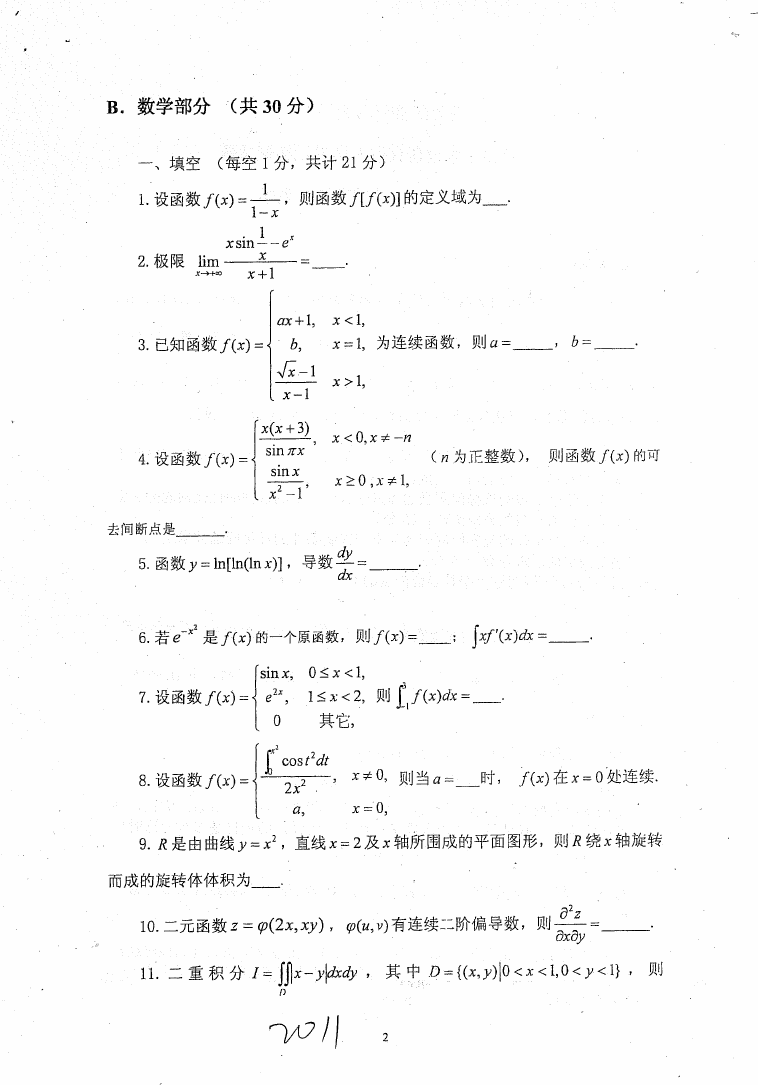 B. 数学部分 （共 30 分）
一、填空 （每空 1 分，共计 21 分）
1. 设函数 f(x) = \frac{1}{1-x}，则函数 f[f(x)] 的定义域为___.
2. 极限 \lim_{x→+∞} \frac{x\sin\frac{1}{x}-e^x}{x+1} = ____.
3. 已知函数 f(x) = { ax+1, x<1, b, x=1, \frac{\sqrt{x}-1}{x-1} x>1, 为连续函数，则 a = ____，b = ____.
4. 设函数 f(x) = { \frac{x(x+3)}{\sin πx}, x<0, x≠-n \frac{\sin x}{x^2-1}, x≥0, x≠1, （n 为正整数），则函数 f(x) 的可
去间断点是______.
5. 函数 y = ln[ln(ln x)]，导数 \frac{dy}{dx} = _____.
6. 若 e^{-x^2} 是 f(x) 的一个原函数，则 f(x) = ____；∫xf'(x)dx = ____.
7. 设函数 f(x) = { sin x, 0≤x<1, e^{2x}, 1≤x<2, 0 其它, 则 ∫_{-1}^{3} f(x)dx = ___.
8. 设函数 f(x) = { \frac{∫_0^{x^2} \cos t^2 dt}{2x^2}, x≠0, a, x=0, 则当 a = ___时，f(x) 在 x = 0 处连续.
9. R 是由曲线 y = x^2，直线 x = 2 及 x 轴所围成的平面图形，则 R 绕 x 轴旋转
而成的旋转体体积为____.
10. 二元函数 z = φ(2x, xy)，φ(u,v) 有连续二阶偏导数，则 \frac{∂^2z}{∂x∂y} = _____.
11. 二重积分 I = ∬_D |x-y|dxdy，其中 D = {(x,y)|0<x<1,0<y<1}，则
2011 2